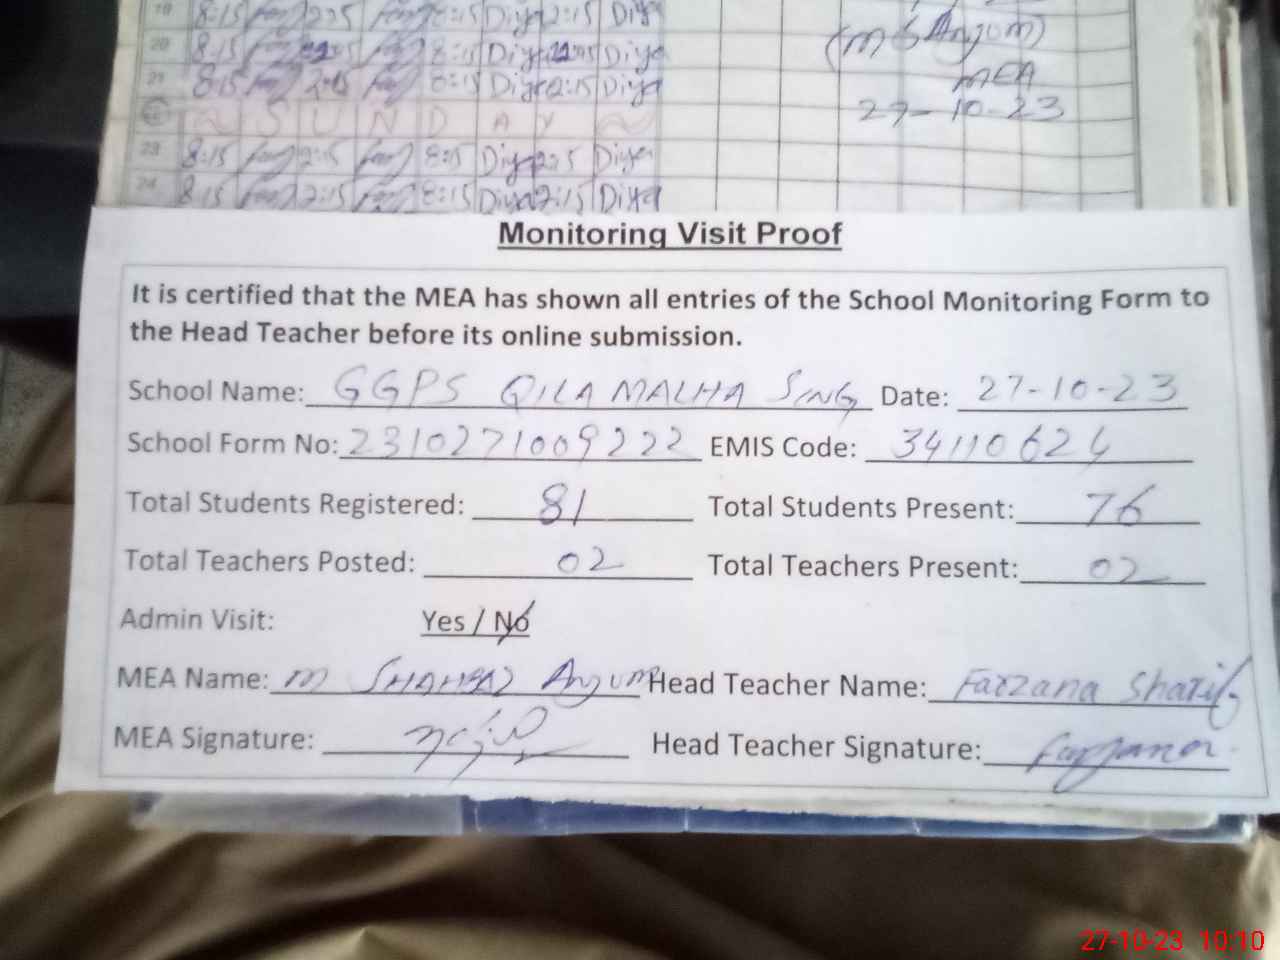 19 8:15 2:15 8:15 Diya 2:15 Diya
20 8:15 2:15 8:15 Diya 2:15 Diya
(M S Anjum)
21 8:15 2:15 8:15 Diya 2:15 Diya
MEA
22 S U N D A Y
27-10-23
23 8:15 2:15 8:15 Diya 2:15 Diya
24 8:15 2:15 8:15 Diya 2:15 Diya
Monitoring Visit Proof
It is certified that the MEA has shown all entries of the School Monitoring Form to
the Head Teacher before its online submission.
School Name: GGPS QILA MALHA SING Date: 27-10-23
School Form No: 2310271009222 EMIS Code: 34110624
Total Students Registered: 81 Total Students Present: 76
Total Teachers Posted: 02 Total Teachers Present: 02
Admin Visit: Yes / No
MEA Name: M SHAHBAZ Anjum Head Teacher Name: Farzana Sharif
MEA Signature: Head Teacher Signature: Farzana
27-10-23 10:10